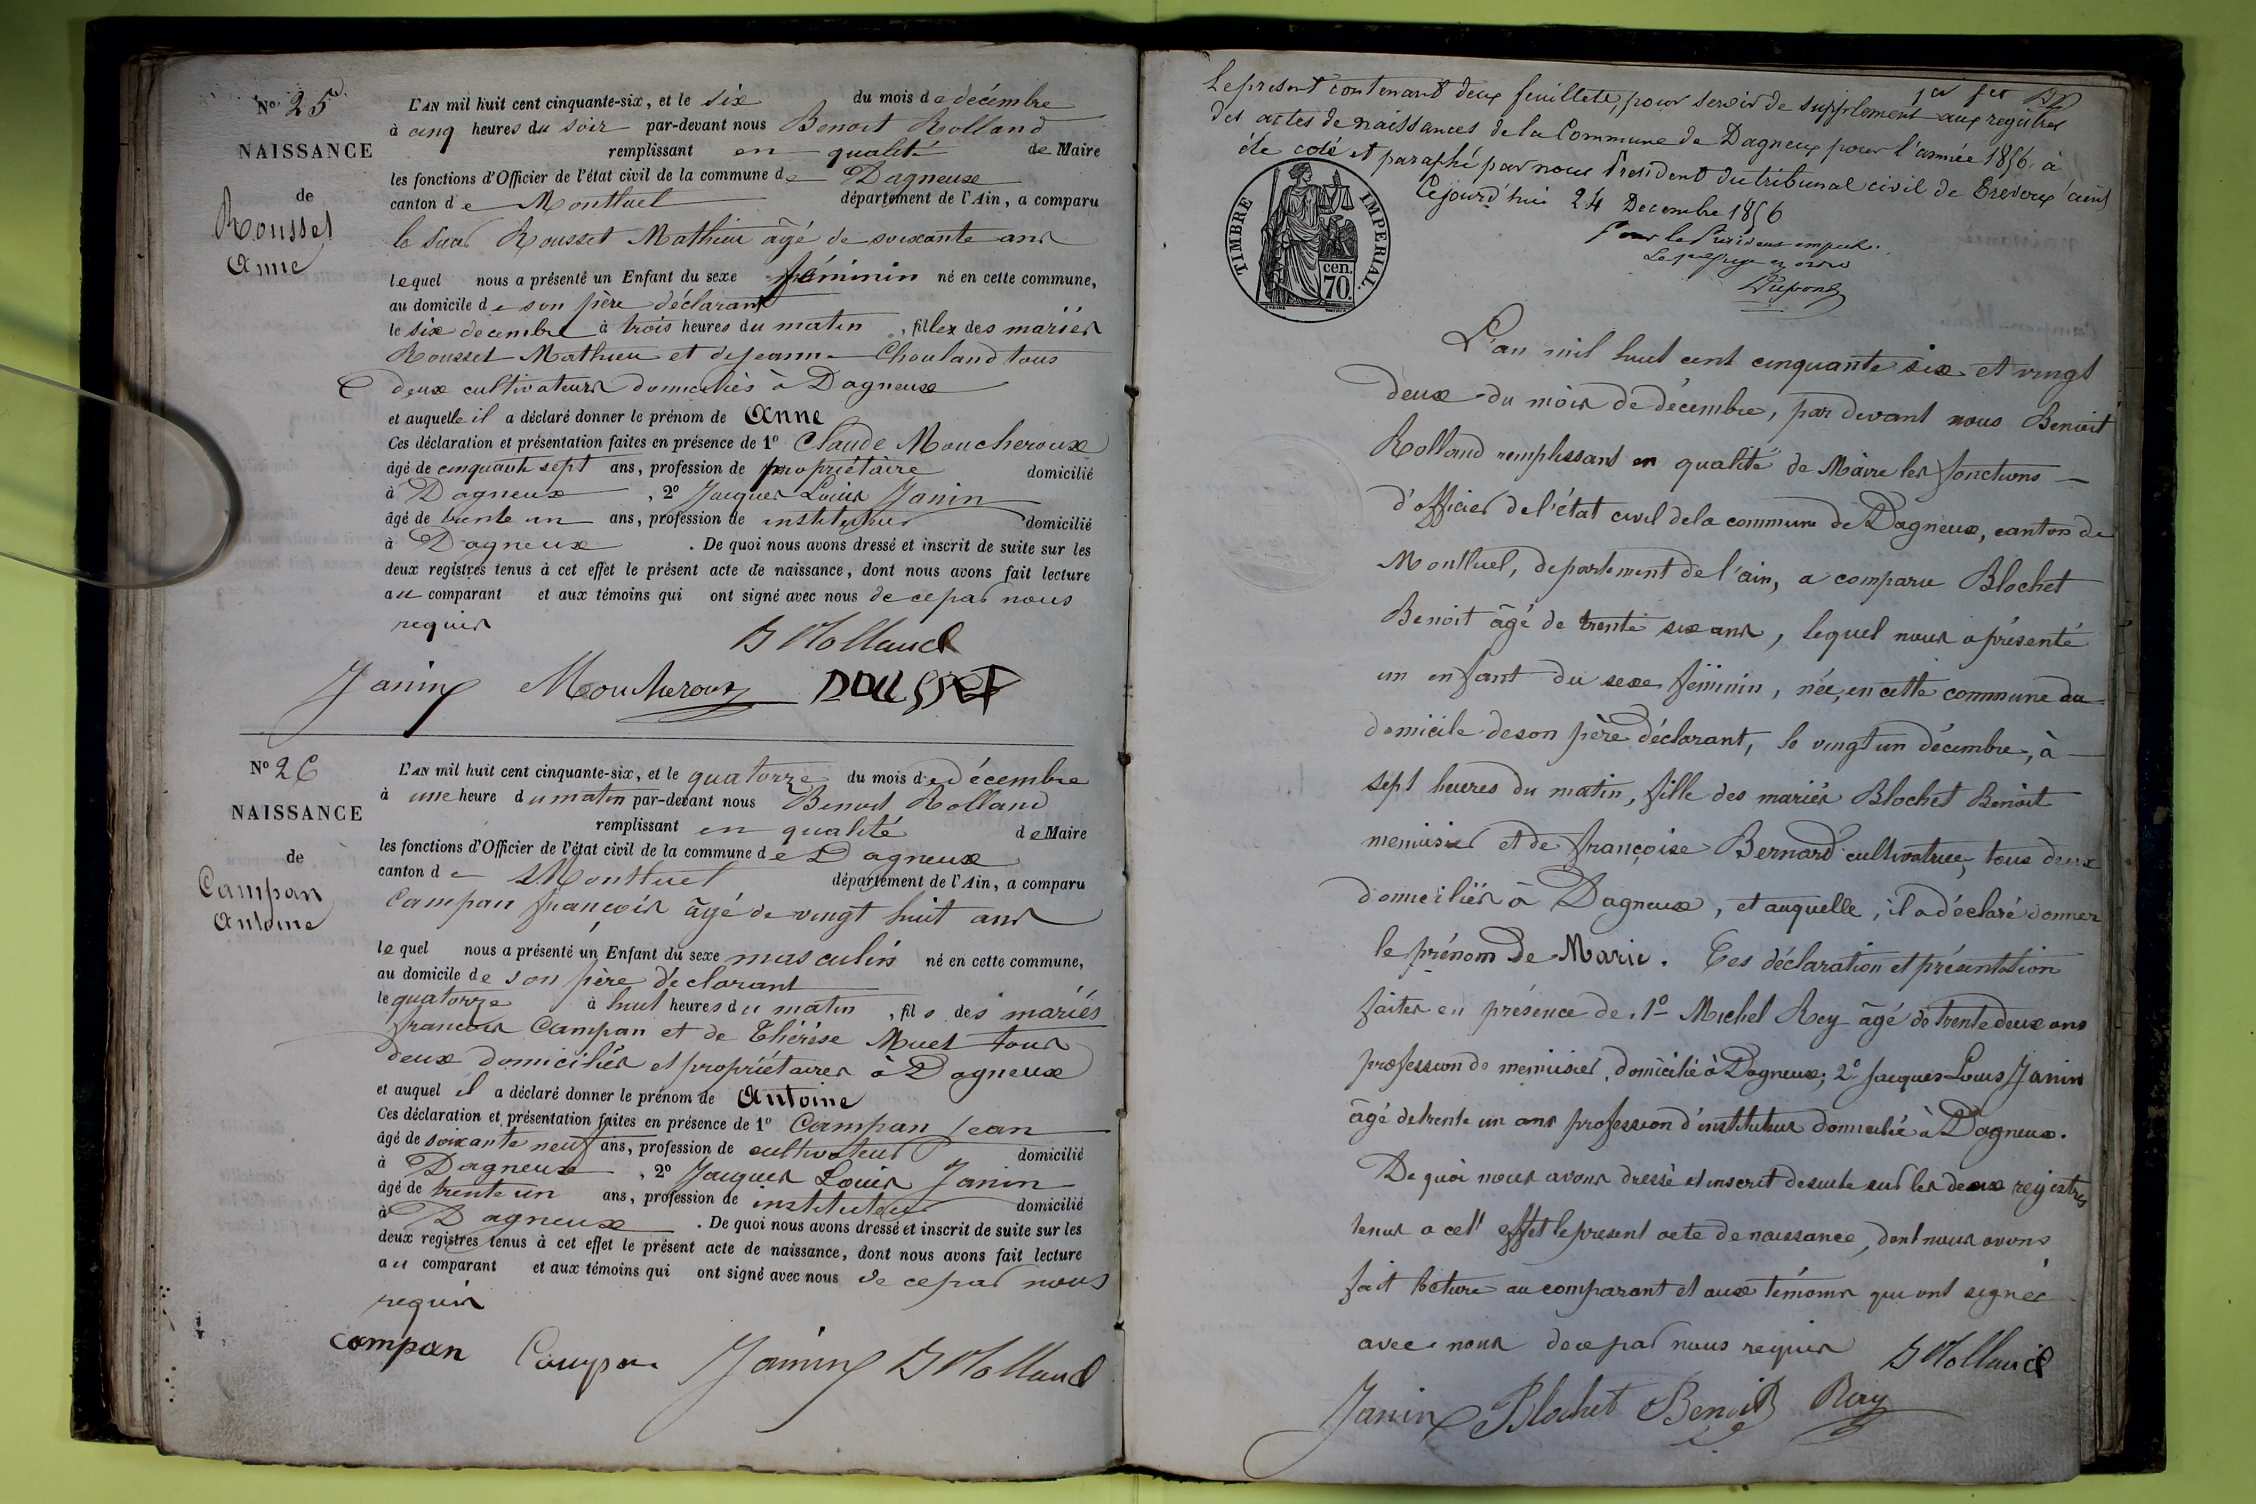 N° 25
NAISSANCE
de
Rousset
Anne
L'AN mil huit cent cinquante-six, et le six du mois de décembre
à cinq heures du soir par-devant nous Benoit Rolland
remplissant en qualité de Maire
les fonctions d'Officier de l'état civil de la commune de Dagneux
canton de Montluel département de l'Ain, a comparu
le Sieur Rousset Mathieu âgé de soixante ans
lequel nous a présenté un Enfant du sexe féminin né en cette commune,
au domicile de son père déclarant
le six decembre à trois heures du matin, fille des mariés
Rousset Mathieu et de Jeanne Chouland tous
deux cultivateurs domiciliés à Dagneux
et auquelle il a déclaré donner le prénom de Anne
Ces déclaration et présentation faites en présence de 1° Claude Moucheroux
âgé de cinquante sept ans, profession de propriétaire domicilié
à Dagneux, 2° Jacques Louis Janin
âgé de trente un ans, profession de instituteur domicilié
à Dagneux. De quoi nous avons dressé et inscrit de suite sur les
deux registres tenus à cet effet le présent acte de naissance, dont nous avons fait lecture
au comparant et aux témoins qui ont signé avec nous de ce par nous
requis
B Rolland
Janin Moucheroux ROUSSET
N° 26
NAISSANCE
de
Campan
Antoine
L'AN mil huit cent cinquante-six, et le quatorze du mois de décembre
à une heure du matin par-devant nous Benoit Rolland
remplissant en qualité de Maire
les fonctions d'Officier de l'état civil de la commune de Dagneux
canton de Montluel département de l'Ain, a comparu
Campan françois âgé de vingt huit ans
lequel nous a présenté un Enfant du sexe masculin né en cette commune,
au domicile de son père déclarant
le quatorze à huit heures du matin, fils des mariés
francois Campan et de Thérèse Muet tous
deux domiciliés et propriétaires à Dagneux
et auquel il a déclaré donner le prénom de Antoine
Ces déclaration et présentation faites en présence de 1° Campan Jean
âgé de soixante neuf ans, profession de cultivateur domicilié
à Dagneux, 2° Jacques Louis Janin
âgé de trente un ans, profession de instituteur domicilié
à Dagneux. De quoi nous avons dressé et inscrit de suite sur les
deux registres tenus à cet effet le présent acte de naissance, dont nous avons fait lecture
au comparant et aux témoins qui ont signé avec nous de ce par nous
requis
Campan Campan Janin B Rolland
Le présent contenant deux feuillets, pour servir de supplément aux registres
des actes de naissances de la Commune de Dagneux pour l'année 1856 à
été coté et paraphé par nous President du tribunal civil de Trevoux (ain)
Cejourd'hui 24 Decembre 1856
Pour le President empêché
Dupont
TIMBRE IMPERIAL
70 cen.
L'an mil huit cent cinquante six et vingt
deux du mois de décembre, par devant nous Benoit
Rolland remplissant en qualité de Maire les fonctions
d'officier de l'état civil de la commune de Dagneux, canton de
Montluel, departement de l'ain, a comparu Blochet
Benoit âgé de trente six ans, lequel nous a présenté
un enfant du sexe féminin, née, en cette commune au
domicile de son père déclarant, le vingt un décembre, à
sept heures du matin, fille des mariés Blochet Benoit
menuisier et de françoise Bernard cultivatrice, tous deux
domiciliés à Dagneux, et auquelle, il a déclaré donner
le prénom de Marie. Ces déclaration et présentation
faites en présence de 1° Michel Rey âgé de trente deux ans
profession de menuisier, domicilié à Dagneux; 2° Jacques Louis Janin
âgé de trente un ans profession d'instituteur domicilié à Dagneux.
De quoi nous avons dressé et inscrit de suite sur les deux registres
tenus a cet effet le present acte de naissance, dont nous avons
fait lecture au comparant et aux témoins qui ont signé
avec nous de ce par nous requis B Rolland
Janin Blochet Benoit Rey